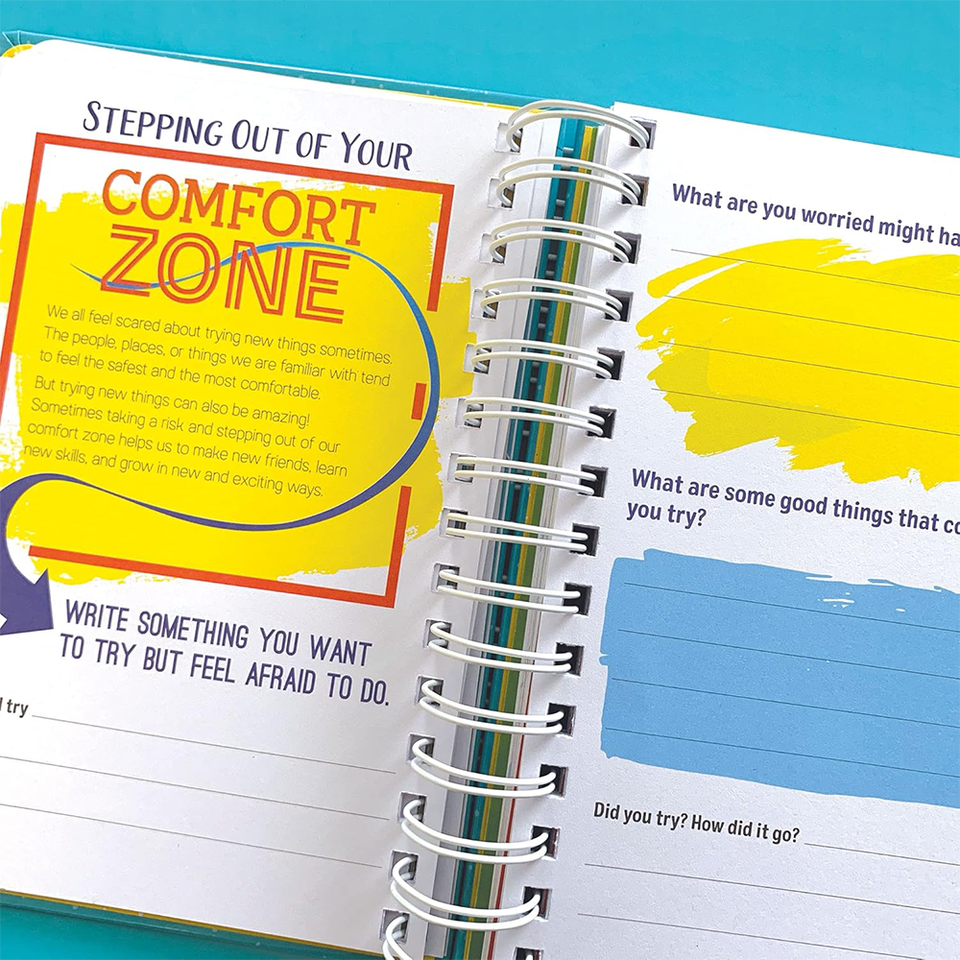 STEPPING OUT OF YOUR
COMFORT
ZONE
We all feel scared about trying new things sometimes.
The people, places, or things we are familiar with tend
to feel the safest and the most comfortable.
But trying new things can also be amazing!
Sometimes taking a risk and stepping out of our
comfort zone helps us to make new friends, learn
new skills, and grow in new and exciting ways.
WRITE SOMETHING YOU WANT
TO TRY BUT FEEL AFRAID TO DO.
try
What are you worried might
What are some good things that
you try?
Did you try? How did it go?